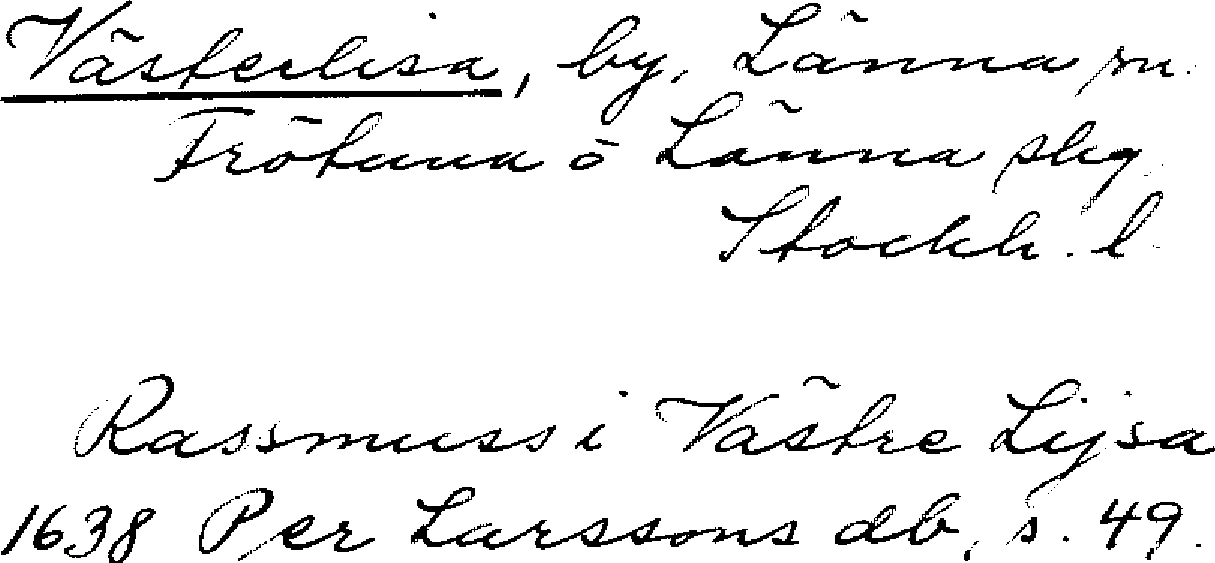 Västerlisa, by, Länna sn.
Frötuna o Länna slg
Stockh. l.
Rassmuss i Västre Lijsa
1638 Per Larssons db, s. 49.